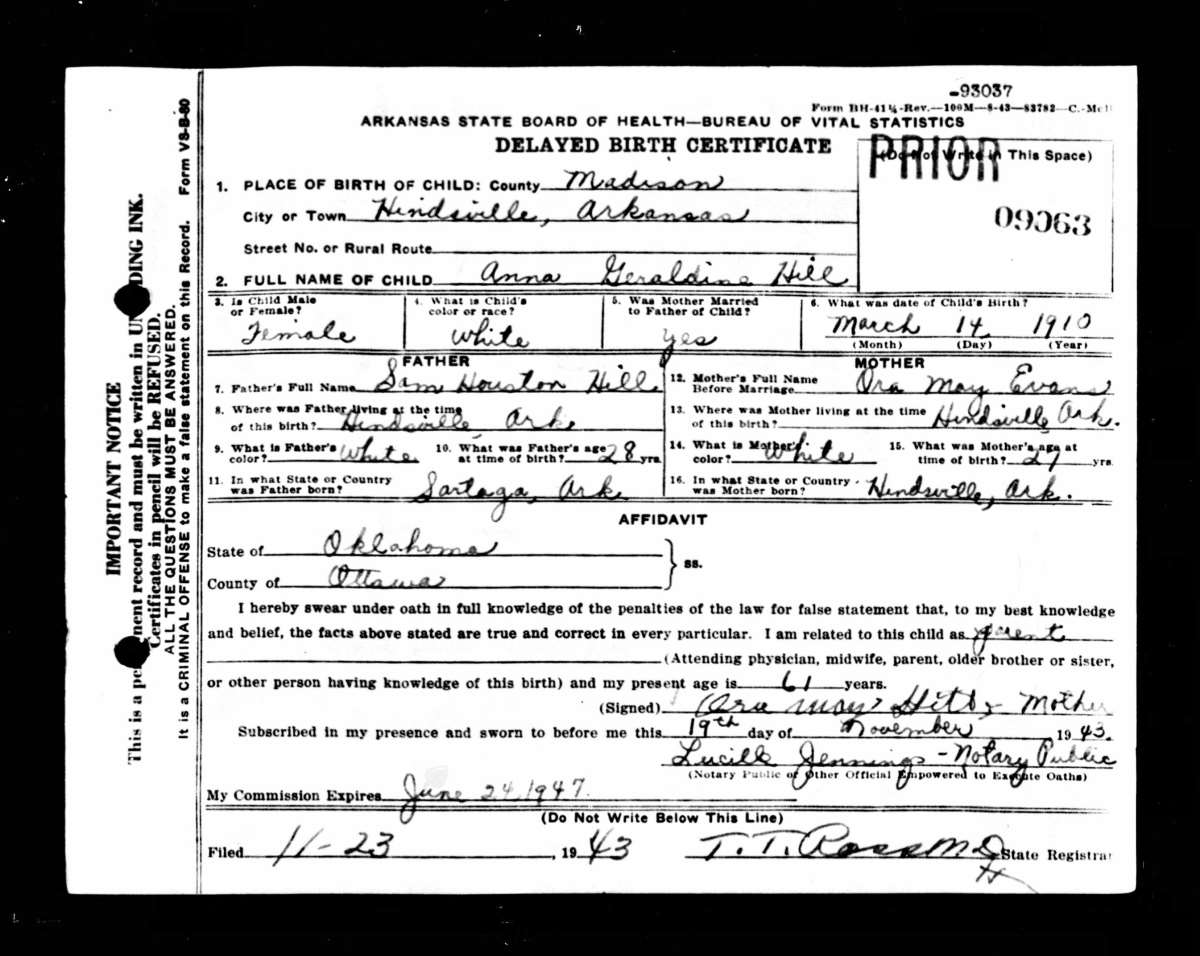 -93037
Form BH-41¼-Rev.—100M—8-43—83782—C.-McB
ARKANSAS STATE BOARD OF HEALTH—BUREAU OF VITAL STATISTICS
DELAYED BIRTH CERTIFICATE
(Do Not Write in This Space)
PRIOR
09063
1. PLACE OF BIRTH OF CHILD: County Madison
City or Town Hindsville, Arkansas
Street No. or Rural Route
2. FULL NAME OF CHILD Anna Geraldine Hill
3. Is Child Male or Female? Female
4. What is Child's color or race? White
5. Was Mother Married to Father of Child? Yes
6. What was date of Child's Birth?
March 14 1910
(Month) (Day) (Year)
FATHER
7. Father's Full Name Sam Houston Hill
8. Where was Father living at the time of this birth? Hindsville Ark.
9. What is Father's color? White
10. What was Father's age at time of birth? 28 yrs.
11. In what State or Country was Father born? Sartaga, Ark.
MOTHER
12. Mother's Full Name Before Marriage Ora May Evans
13. Where was Mother living at the time of this birth? Hindsville Ark.
14. What is Mother's color? White
15. What was Mother's age at time of birth? 27 yrs.
16. In what State or Country was Mother born? Hindsville, Ark.
AFFIDAVIT
State of Oklahoma
County of Ottawa
ss.
I hereby swear under oath in full knowledge of the penalties of the law for false statement that, to my best knowledge
and belief, the facts above stated are true and correct in every particular. I am related to this child as parent
(Attending physician, midwife, parent, older brother or sister,
or other person having knowledge of this birth) and my present age is 61 years.
(Signed) Ora May Mother
Subscribed in my presence and sworn to before me this 19th day of November 1943.
Lucille Jennings - Notary Public
(Notary Public or Other Official Empowered to Execute Oaths)
My Commission Expires June 24, 1947.
(Do Not Write Below This Line)
Filed 11-23, 1943 T. T. Ross M.D. State Registrar
IMPORTANT NOTICE
This is a permanent record and must be written in UNFADING INK.
Certificates in pencil will be REFUSED.
ALL THE QUESTIONS MUST BE ANSWERED.
It is a CRIMINAL OFFENSE to make a false statement on this Record. Form VS-B-80